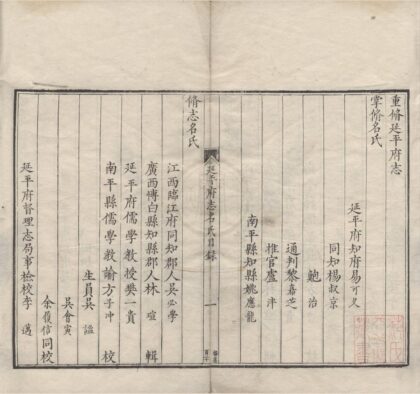 重修延平府志
掌修名氏
延平府知府易可久
同知楊叔京
鮑治
通判黎嘉芝
推官盧泮
南平縣知縣姚應龍
延平府志名氏目録
一
脩志名氏
江西臨江府同知郡人吳必學
廣西博白縣知縣郡人林瑄輯
延平府儒學教授樊一貴
南平縣儒學教諭方子冲校
生員吳謚
吳會寅
余履信同校
延平府督理志局事檢校李邁